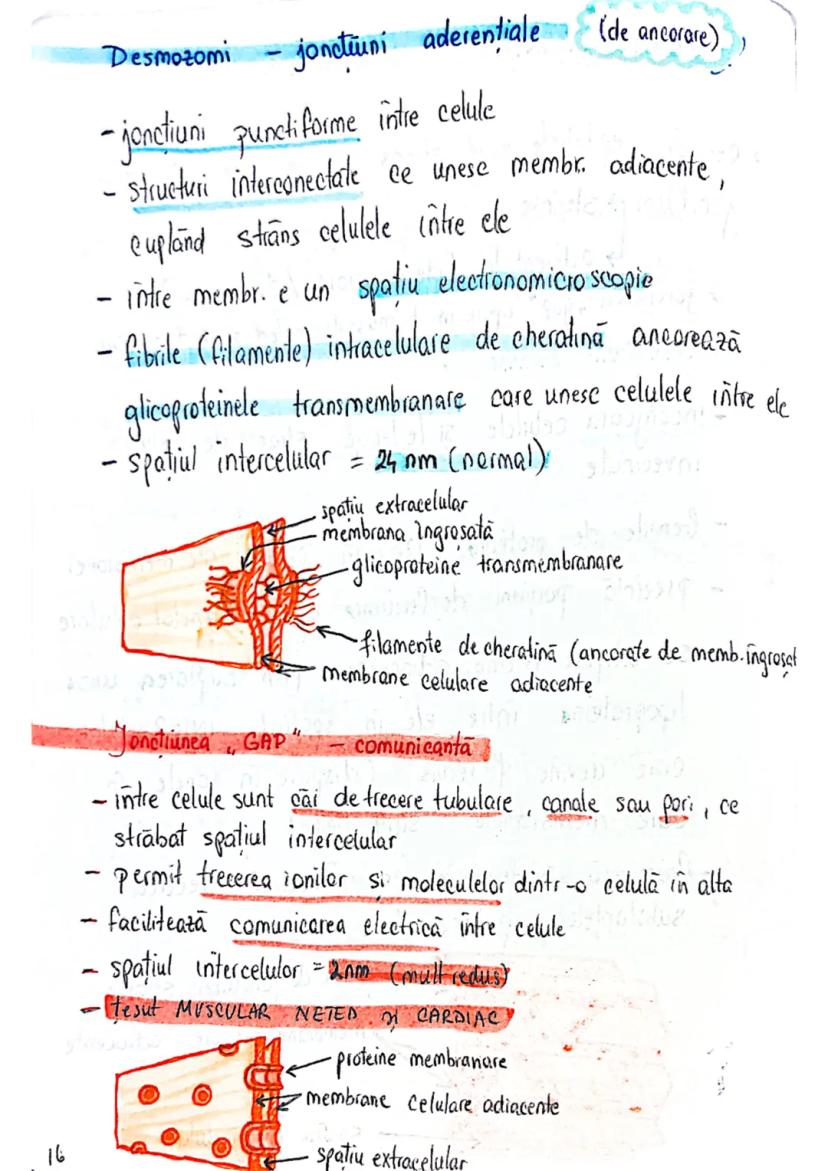 Desmozomi - joncțiuni aderențiale (de ancorare)
- joncțiuni punctiforme între celule
- structuri interconectate ce unesc membr. adiacente,
cuplând strâns celulele între ele
- între membr. e un spațiu electronomicroscopic
- fibrile (filamente) intracelulare de cheratină ancorează
glicoproteinele transmembranare care unesc celulele între ele
- spațiul intercelular = 24 nm (normal)
spațiu extracelular
membrana îngroșată
glicoproteine transmembranare
filamente de cheratină (ancorate de memb. îngroșat
membrane celulare adiacente
Joncțiunea „GAP" - comunicantă
- între celule sunt căi de trecere tubulare, canale sau pori, ce
străbat spațiul intercelular
- permit trecerea ionilor și moleculelor dintr-o celulă în alta
- facilitează comunicarea electrică între celule
- spațiul intercelular = 2nm (mult redus)
- țesut MUSCULAR NETED și CARDIAC
proteine membranare
membrane celulare adiacente
spațiu extracelular
16